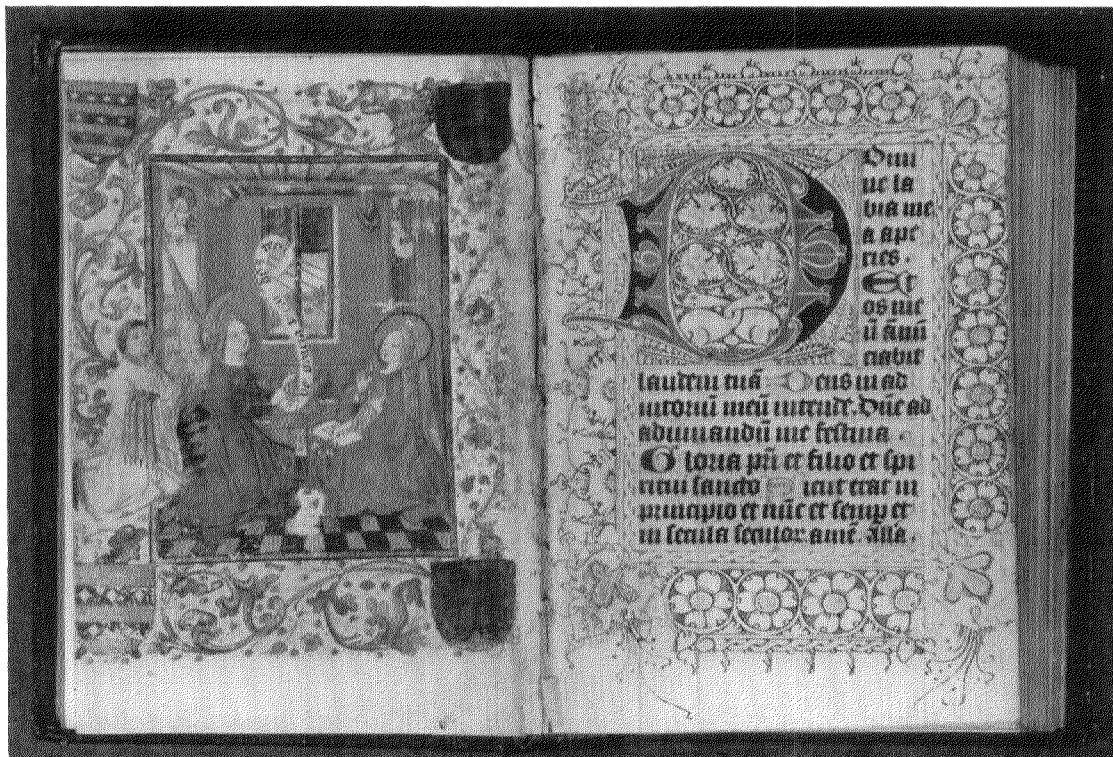 Domi
ne la
bia me
a ape
ries .
Et
os me
ū ānū
ciabit
laudem tuā Deus in ad
iutoriū meū intende . Dñe ad
adiuuandū me festina .
Gloria pr̄i et filio et spi
ritui sancto Sicut erat in
principio et nūc et semp et
in secula seculor amē . Alla .